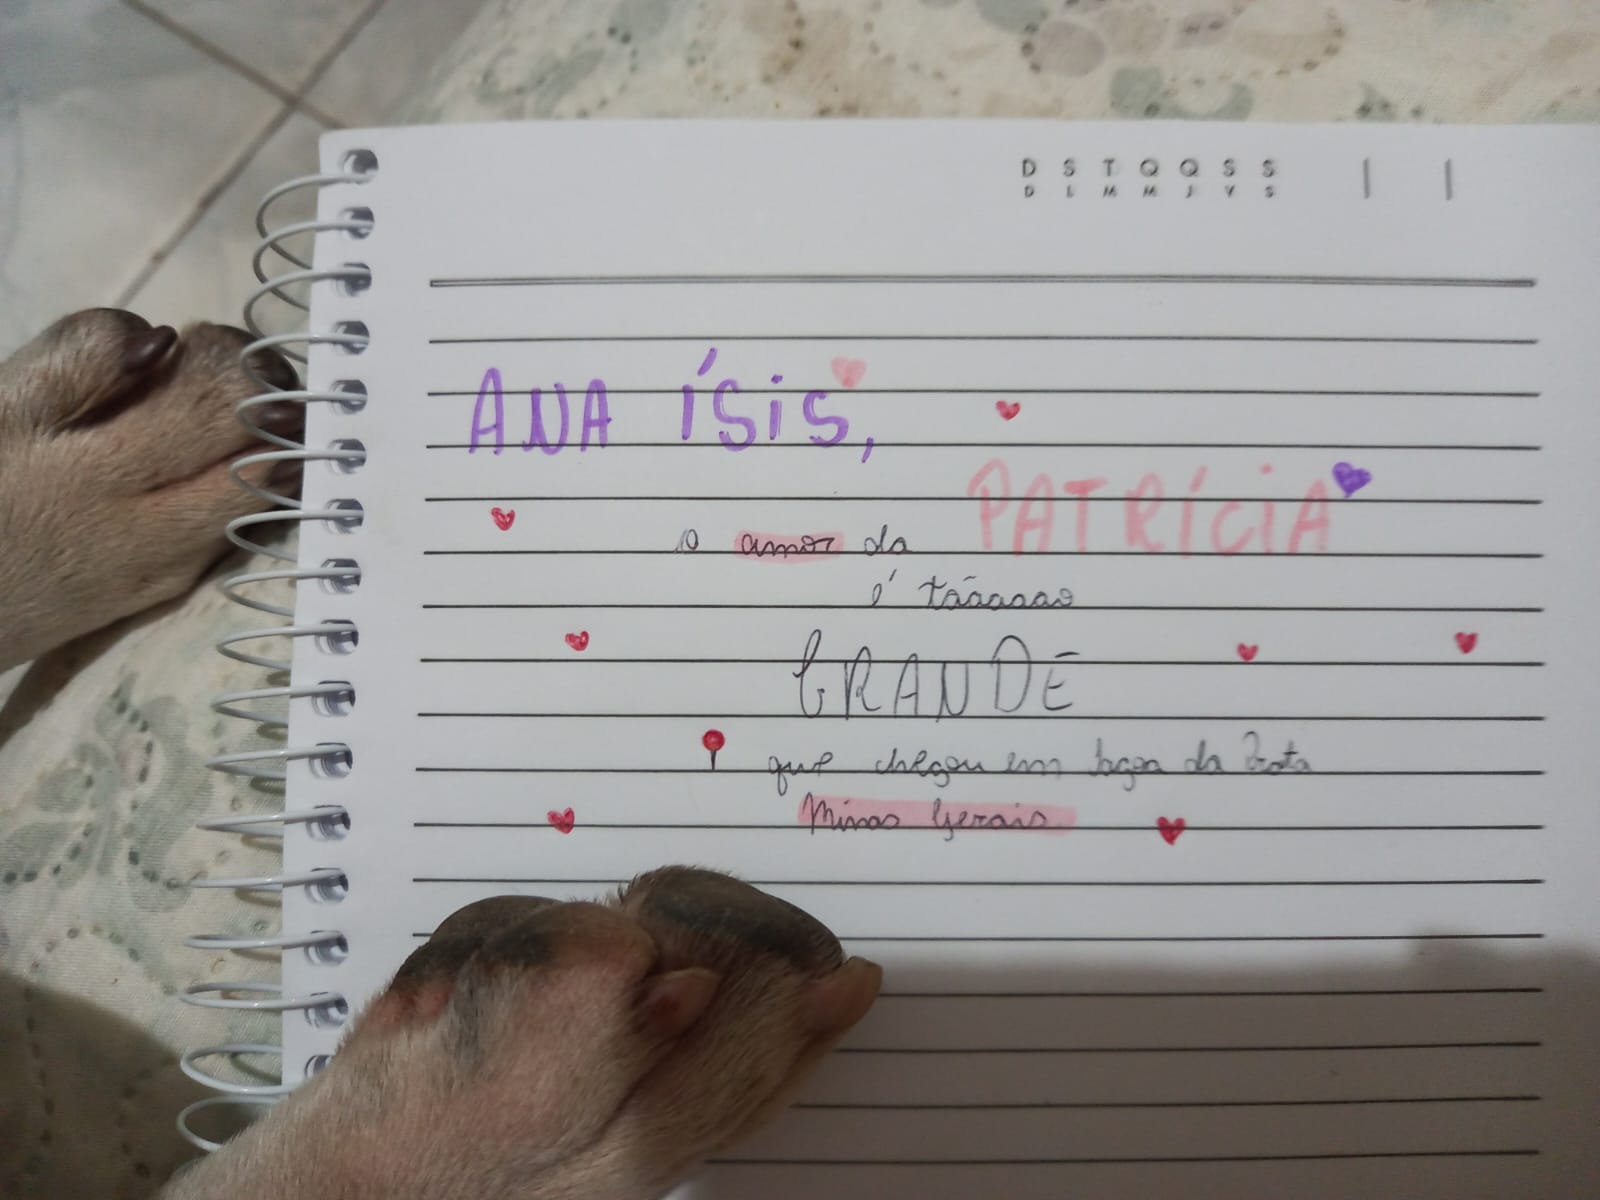 D S T Q Q S S
D L M M J V S
ANA ÍSIS,
o amor da PATRÍCIA
é tãaaaao
GRANDE
que chegou em Lagoa da Prata
Minas Gerais